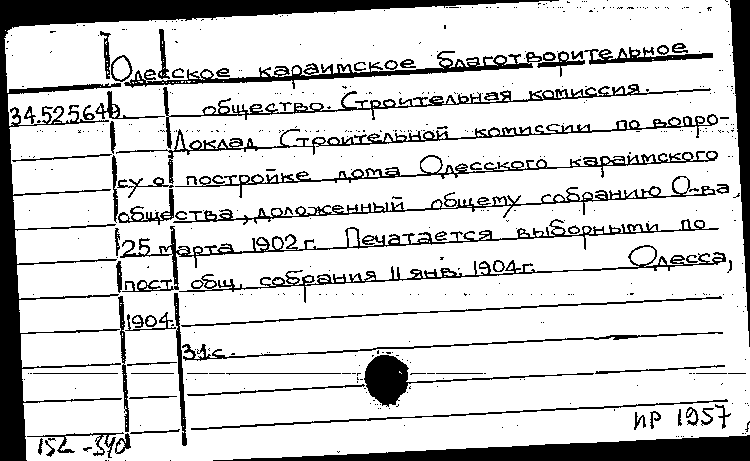 Одесское караимское благотворительное
34.525649. общество. Строительная комиссия.
Доклад Строительной комиссии по вопро-
су о постройке дома Одесского караимского
общества, доложенный общему собранию О-ва
25 марта 1902 г. Печатается выборными по
пост. общ. собрания 11 янв. 1904 г. Одесса,
1904.
31 с.
152-340 ИР 1957